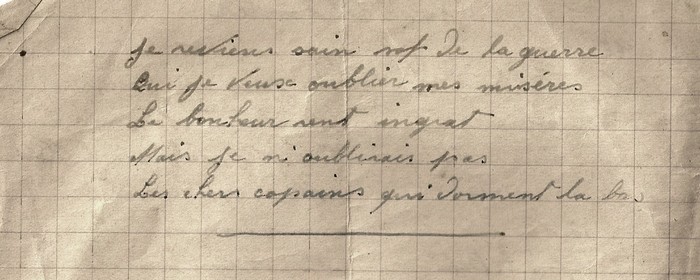 Je reviens sain nof de la guerre
Oui je veux oublier mes miséres
Le bonheur rent ingrat
Mais je n'oublirais pas
Les chers copains qui dorment la bas